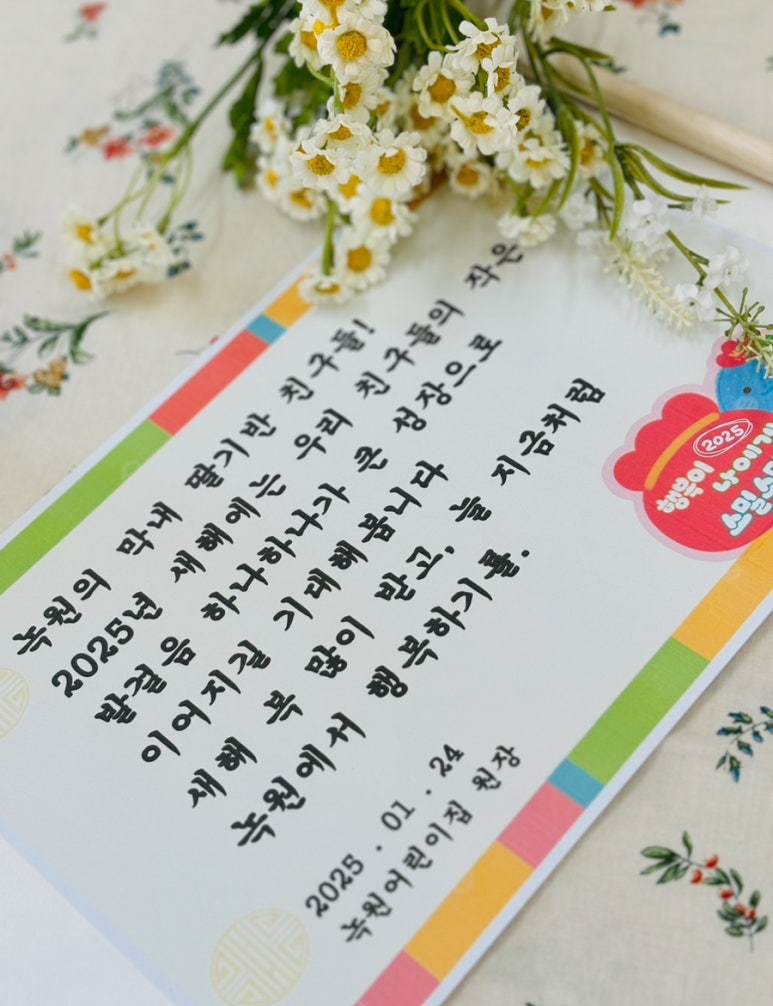 녹원의 막내 딸기반 친구들!
2025년 새해에는 우리 친구들의 작은
발걸음 하나하나가 큰 성장으로
이어지길 기대해봅니다
새해 복 많이 받고, 늘 지금처럼
녹원에서 행복하기를.
2025 . 01 . 24
녹원어린이집 원장
2025
행복이